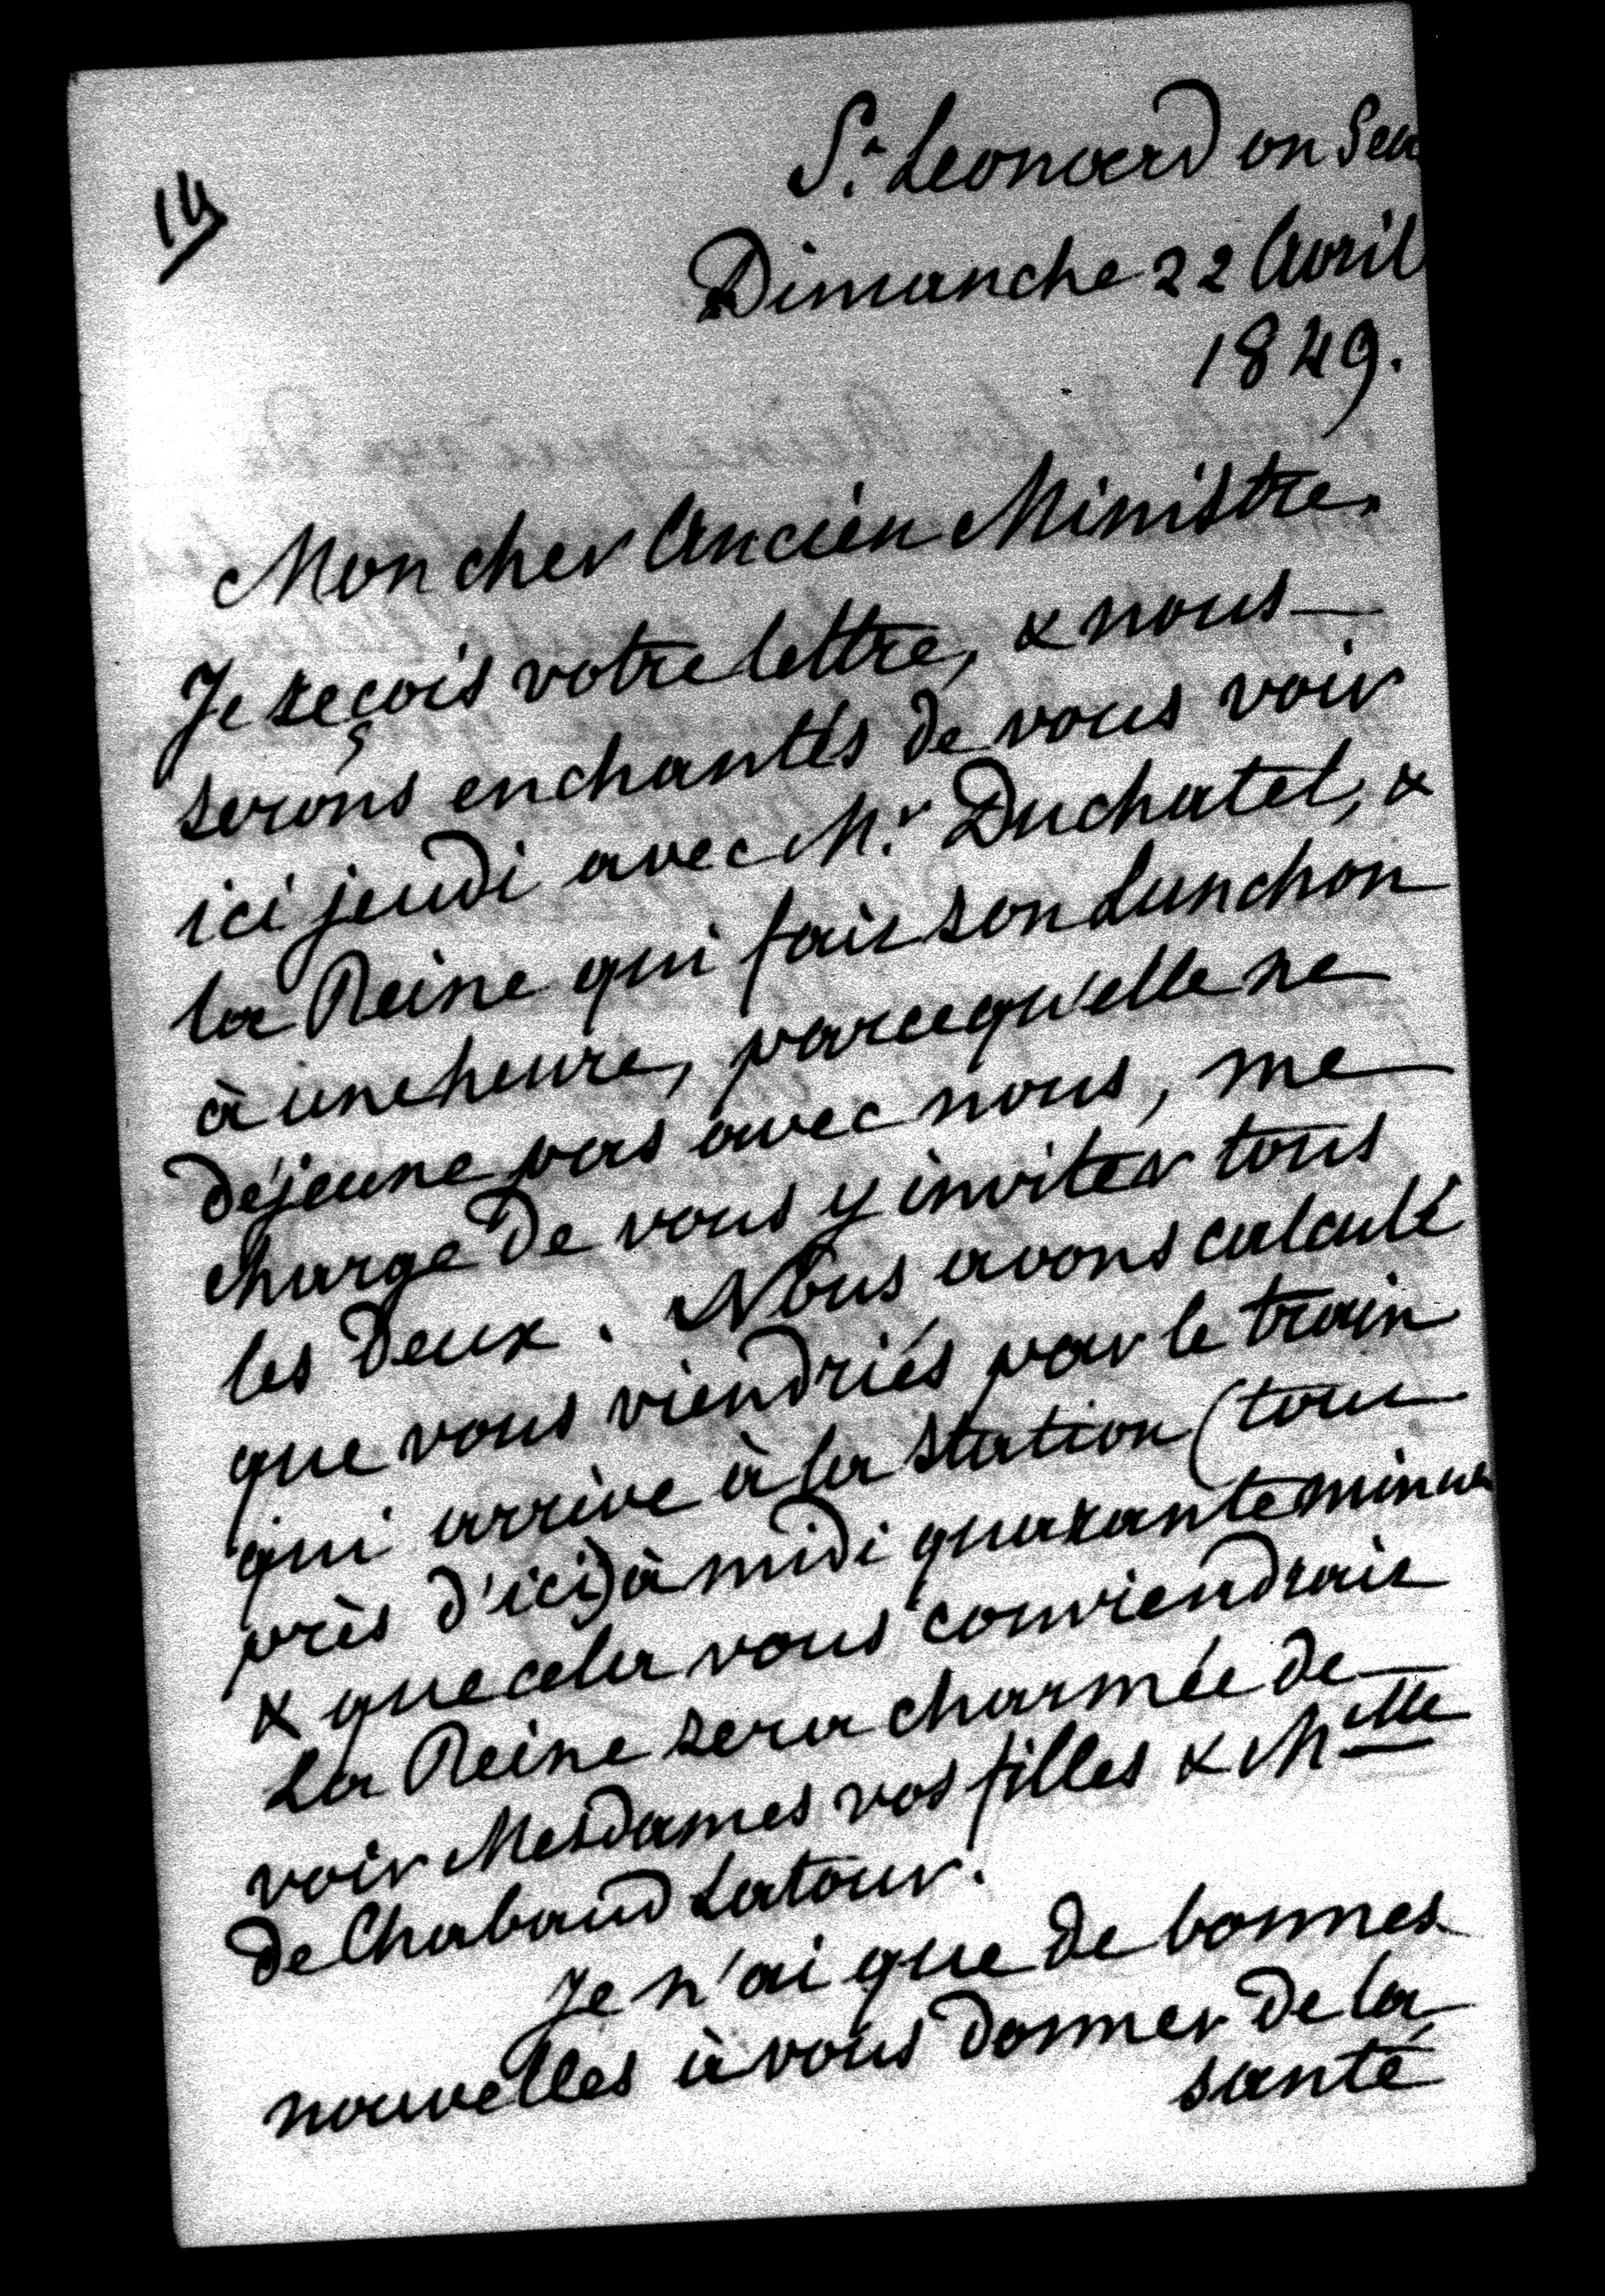 14
St. Leonard on Sea
Dimanche 22 Avril
1849.
Mon cher Ancien Ministre,
Je reçois votre lettre, & nous
serons enchantés de vous voir
ici jeudi avec Mr. Duchatel, &
la Reine qui fait son Lunchon
à une heure, parcequ'elle ne
déjeune pas avec nous, me
charge de vous y inviter tous
les deux. Nous avons calculé
que vous viendriés par le train
qui arrive à la Station (tout
près d'ici) à midi quarante minutes
& que cela vous conviendrait
La Reine sera charmée de
voir Mesdames vos filles & Mlle
de Chabaud Latour.
Je n'ai que de bonnes
nouvelles à vous donner de la
santé